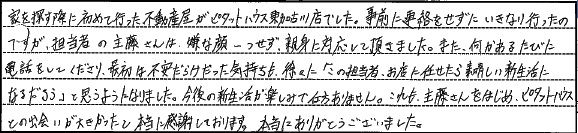 家を探す際に初めて行った不動産屋がピタットハウス東加古川店でした。事前に連絡をせずに いきなり行ったの
ですが、担当者の主藤さんは、嫌な顔一つせず、親身に対応して頂きました。また、何かあるたびに
電話をしてくださり、最初は不安だらけだった気持ちも、徐々に「この担当者、お店に任せたら素晴しい新生活に
なるだろう」と思うようになりました。今後の新生活が楽しみで仕方ありません。これも、主藤さんをはじめ、ピタットハウス
との出会いが大きかったと本当に感謝しております。本当にありがとうございました。